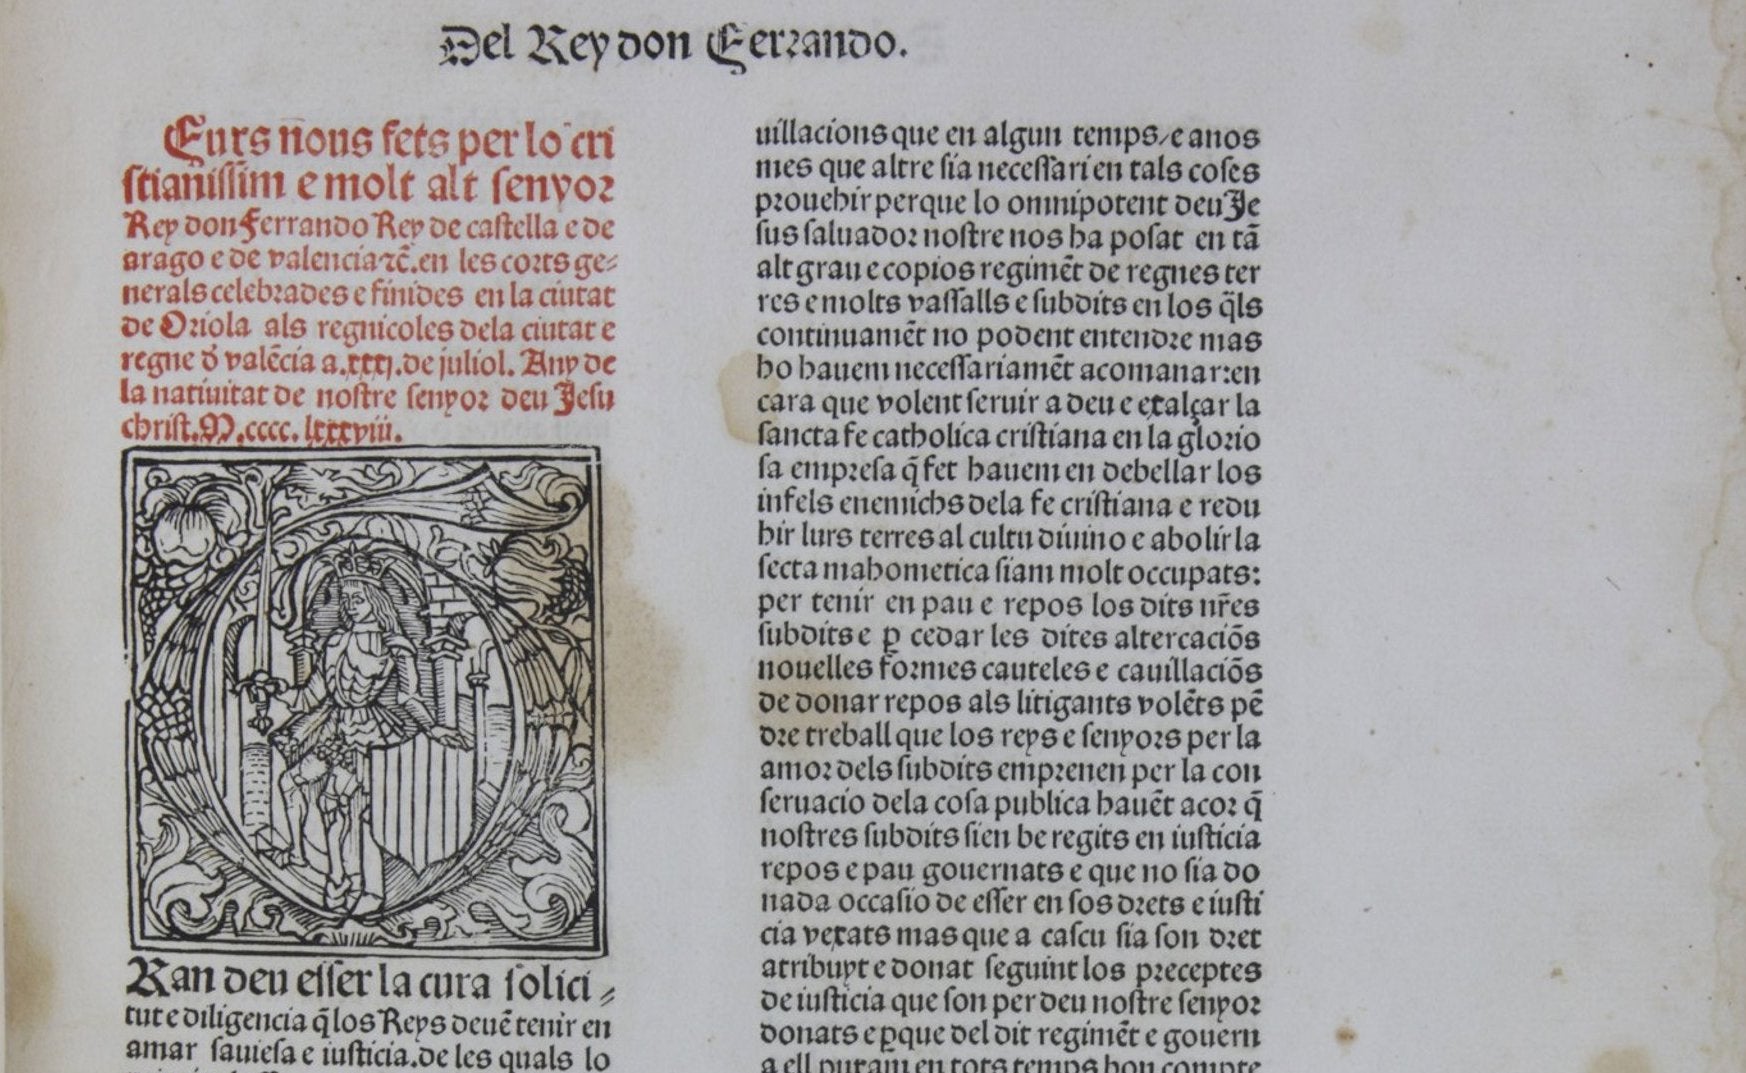 Del Rey don Ferrando.
Furs nous fets per lo cri
stianissim e molt alt senyor
Rey don Ferrando Rey de castella e de
arago e de valencia ⁊c̄. en les corts ge⸗
nerals celebrades e finides en la ciutat
de Oriola als regnicoles dela ciutat e
regne d̄ valēcia a .xxxj. de juliol. Any de
la natiuitat de nostre senyor deu Jesu
christ. M.cccc. lxxxviii.
Ran deu esser la cura solici⸗
tut e diligencia q̄ los Reys deuē tenir en
amar sauiesa e iusticia. de les quals lo
uillacions que en algun temps/e anos
mes que altre sia necessari en tals coses
prouehir perque lo omnipotent deu Je
sus saluador nostre nos ha posat en tā
alt grau e copios regimēt de regnes ter
res e molts vassalls e subdits en los q̄ls
continuamēt no podent entendre mas
ho hauem necessariamēt acomanar: en
cara que volent seruir a deu e exalçar la
sancta fe catholica cristiana en la glorio
sa empresa q̄ fet hauem en debellar los
infels enemichs dela fe cristiana e redu
hir lurs terres al cultu diuino e abolir la
secta mahometica siam molt occupats:
per tenir en pau e repos los dits nr̄es
subdits e ꝑ cedar les dites altercaciōs
nouelles formes cauteles e cauillaciōs
de donar repos als litigants volēts pē
dre treball que los reys e senyors per la
amor dels subdits emprenen per la con
seruacio dela cosa publica hauēt acor q̄
nostres subdits sien be regits en iusticia
repos e pau gouernats e que no sia do
nada occasio de esser en sos drets e iusti
cia vexats mas que a cascu sia son dret
atribuyt e donat seguint los preceptes
de iusticia que son per deu nostre senyor
donats e ꝑque del dit regimēt e gouern
a ell puram en tots temps bon compte